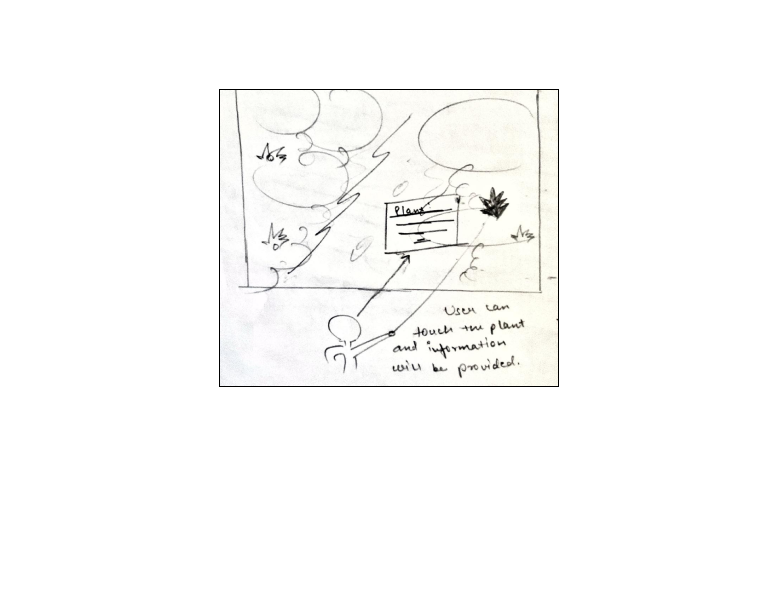 Plant
User can
touch the plant
and information
will be provided.